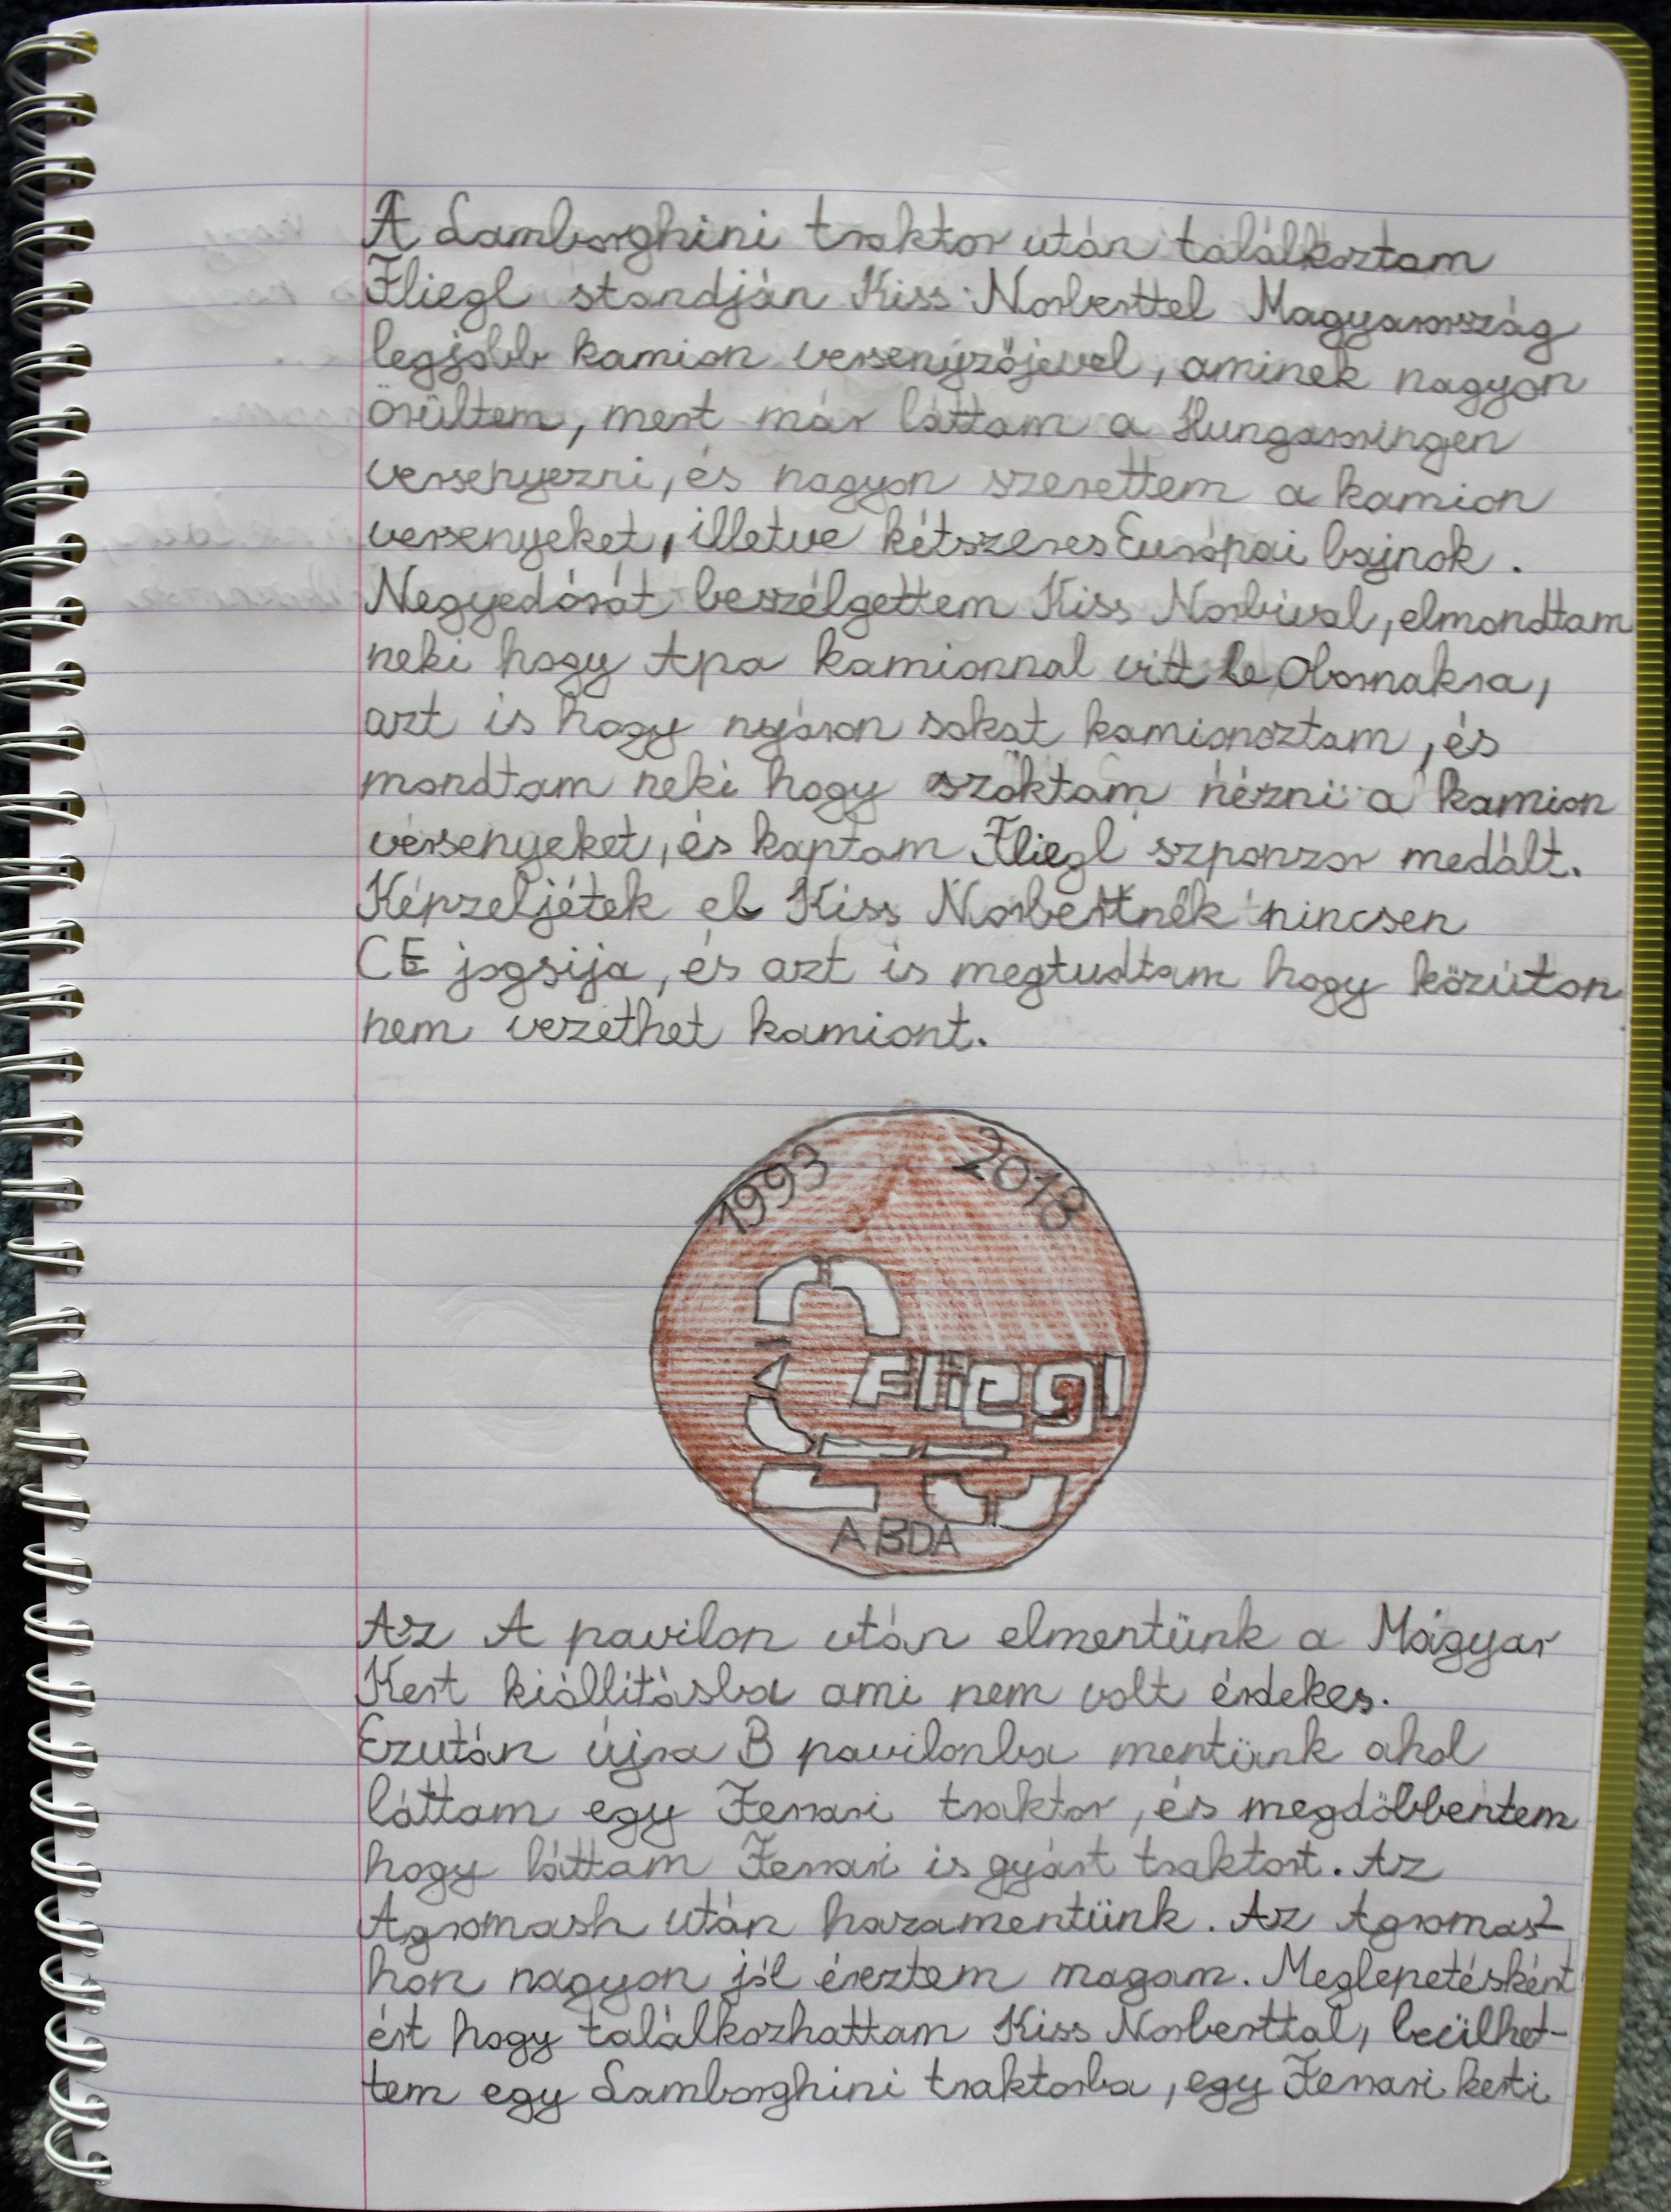 A Lamborghini traktor után találkoztam
Fliegl standján Kiss Norberttel Magyarország
legjobb kamion versenyzőjével, aminek nagyon
örültem, mert már láttam a Hungaroringen
versenyezni, és nagyon szerettem a kamion
versenyeket, illetve kétszeres Európai bajnok.
Negyedórát beszélgettem Kiss Norbival, elmondtam
neki hogy Apa kamionnal vitt le Obornakra,
azt is hogy nyáron sokat kamionoztam, és
mondtam neki hogy szoktam nézni a kamion
versenyeket, és kaptam Fliegl szponzor medált.
Képzeljétek el Kiss Norbertnek nincsen
CE jogsija, és azt is megtudtam hogy közúton
nem vezethet kamiont.
1993 2018
Fliegl
ABDA
Az A pavilon után elmentünk a Magyar
Kert kiállitásba ami nem volt érdekes.
Ezután újra B pavilonba mentünk ahol
láttam egy Ferrari traktor, és megdöbbentem
hogy láttam Ferrari is gyárt traktort. Az
Agromash után hazamentünk. Az Agromas-
hon nagyon jól éreztem magam. Meglepetésként
ért hogy találkozhattam Kiss Norberttal, beülhet-
tem egy Lamborghini traktorba, egy Ferrari kerti